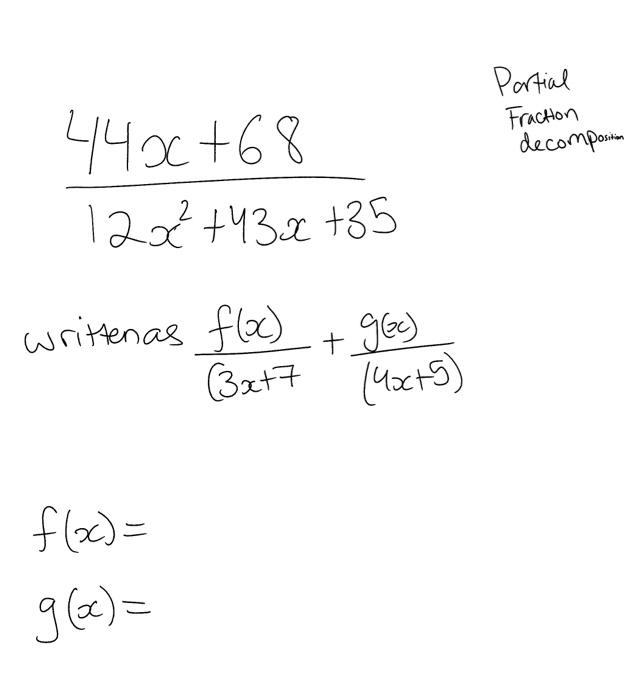 Partial
Fraction
decomposition
44x+68
12x²+43x+35
written as f(x)/(3x+7 + g(x)/(4x+5)
f(x)=
g(x)=